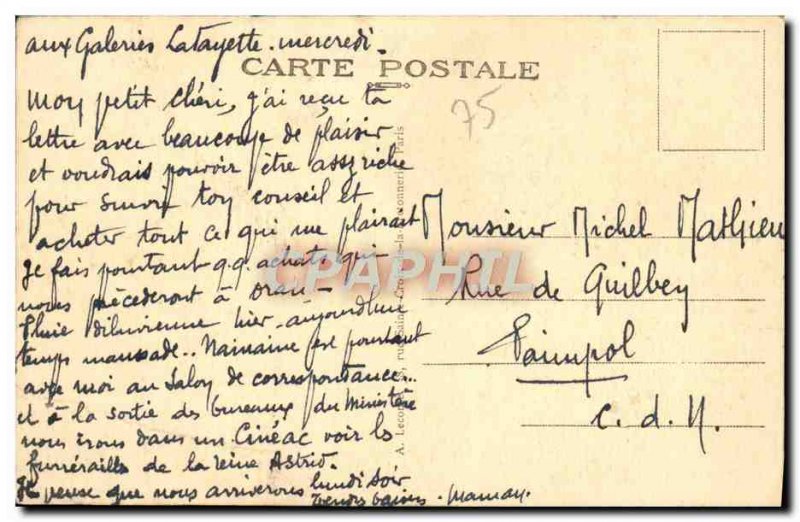 aux Galeries Lafayette. mercredi.
CARTE POSTALE
75
Mon petit chéri, j'ai reçu ta
lettre avec beaucoup de plaisir
et voudrais pouvoir être assz riche
pour suivre ton conseil et
acheter tout ce qui me plairait
Je fais pourtant q.q. achats qui
nous précèderont à Oran -
Pluie diluvienne hier - aujourd'hui
temps maussade.. est pourtant
avec moi au Salon de correspondance...
et à la sortie des bureaux du Ministère
nous irons dans un Cinéac voir les
funérailles de la reine Astrid.
Je pense que nous arriverons lundi soir
Tendres baisers. Maman.
Monsieur Michel Mathieu
Rue de Guilbey
Paimpol
C. d. N.
Paris
CPAPHIL